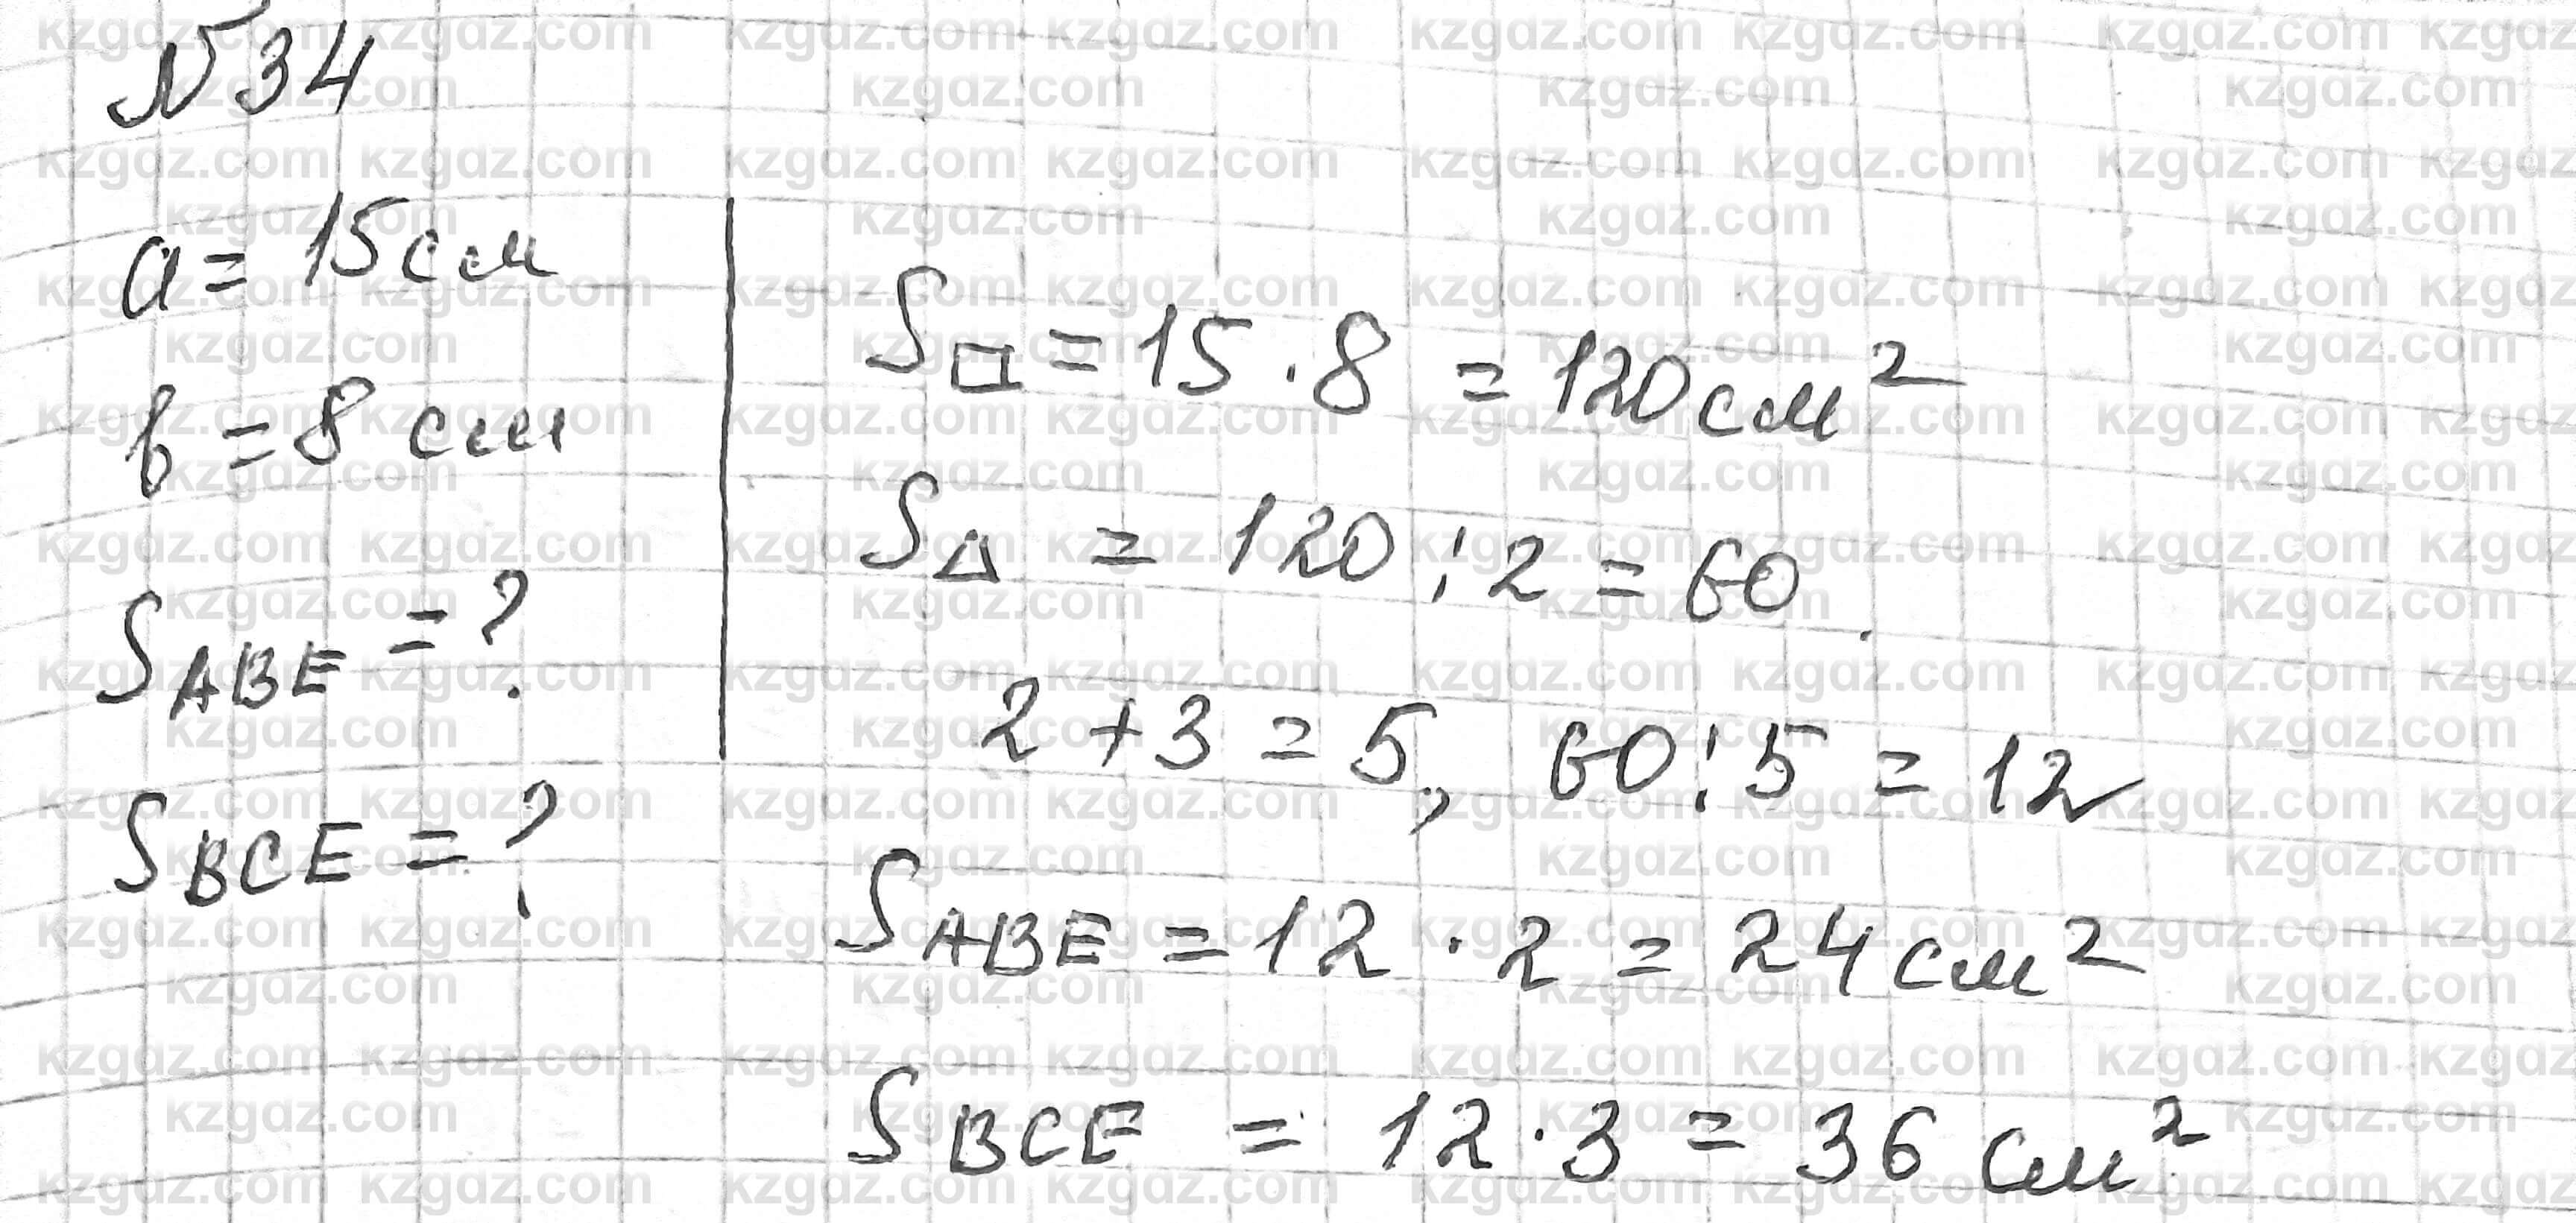 №34
a = 15 см
b = 8 см
S ABE = ?
S BCE = ?
S□ = 15 · 8 = 120 см²
S△ = 120 : 2 = 60
2 + 3 = 5, 60 : 5 = 12
S ABE = 12 · 2 = 24 см²
S BCE = 12 · 3 = 36 см²
kzgdz.com